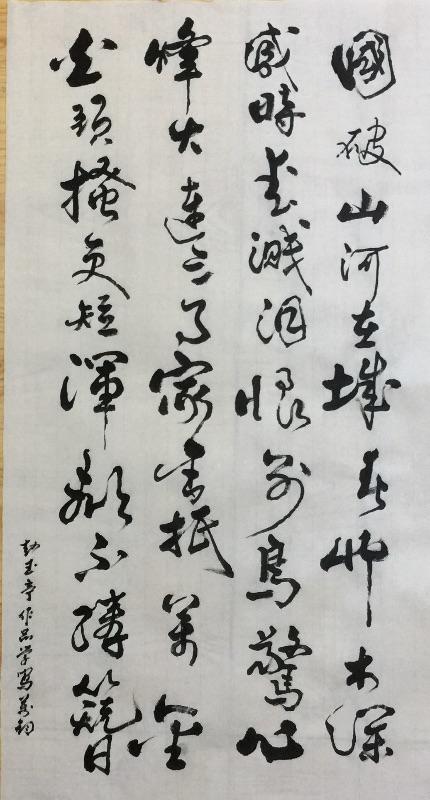 國破山河在城春草木深
感時花濺泪恨别鳥驚心
烽火連三月家書抵萬金
白頭搔更短渾欲不勝簪
玉亭作品学写